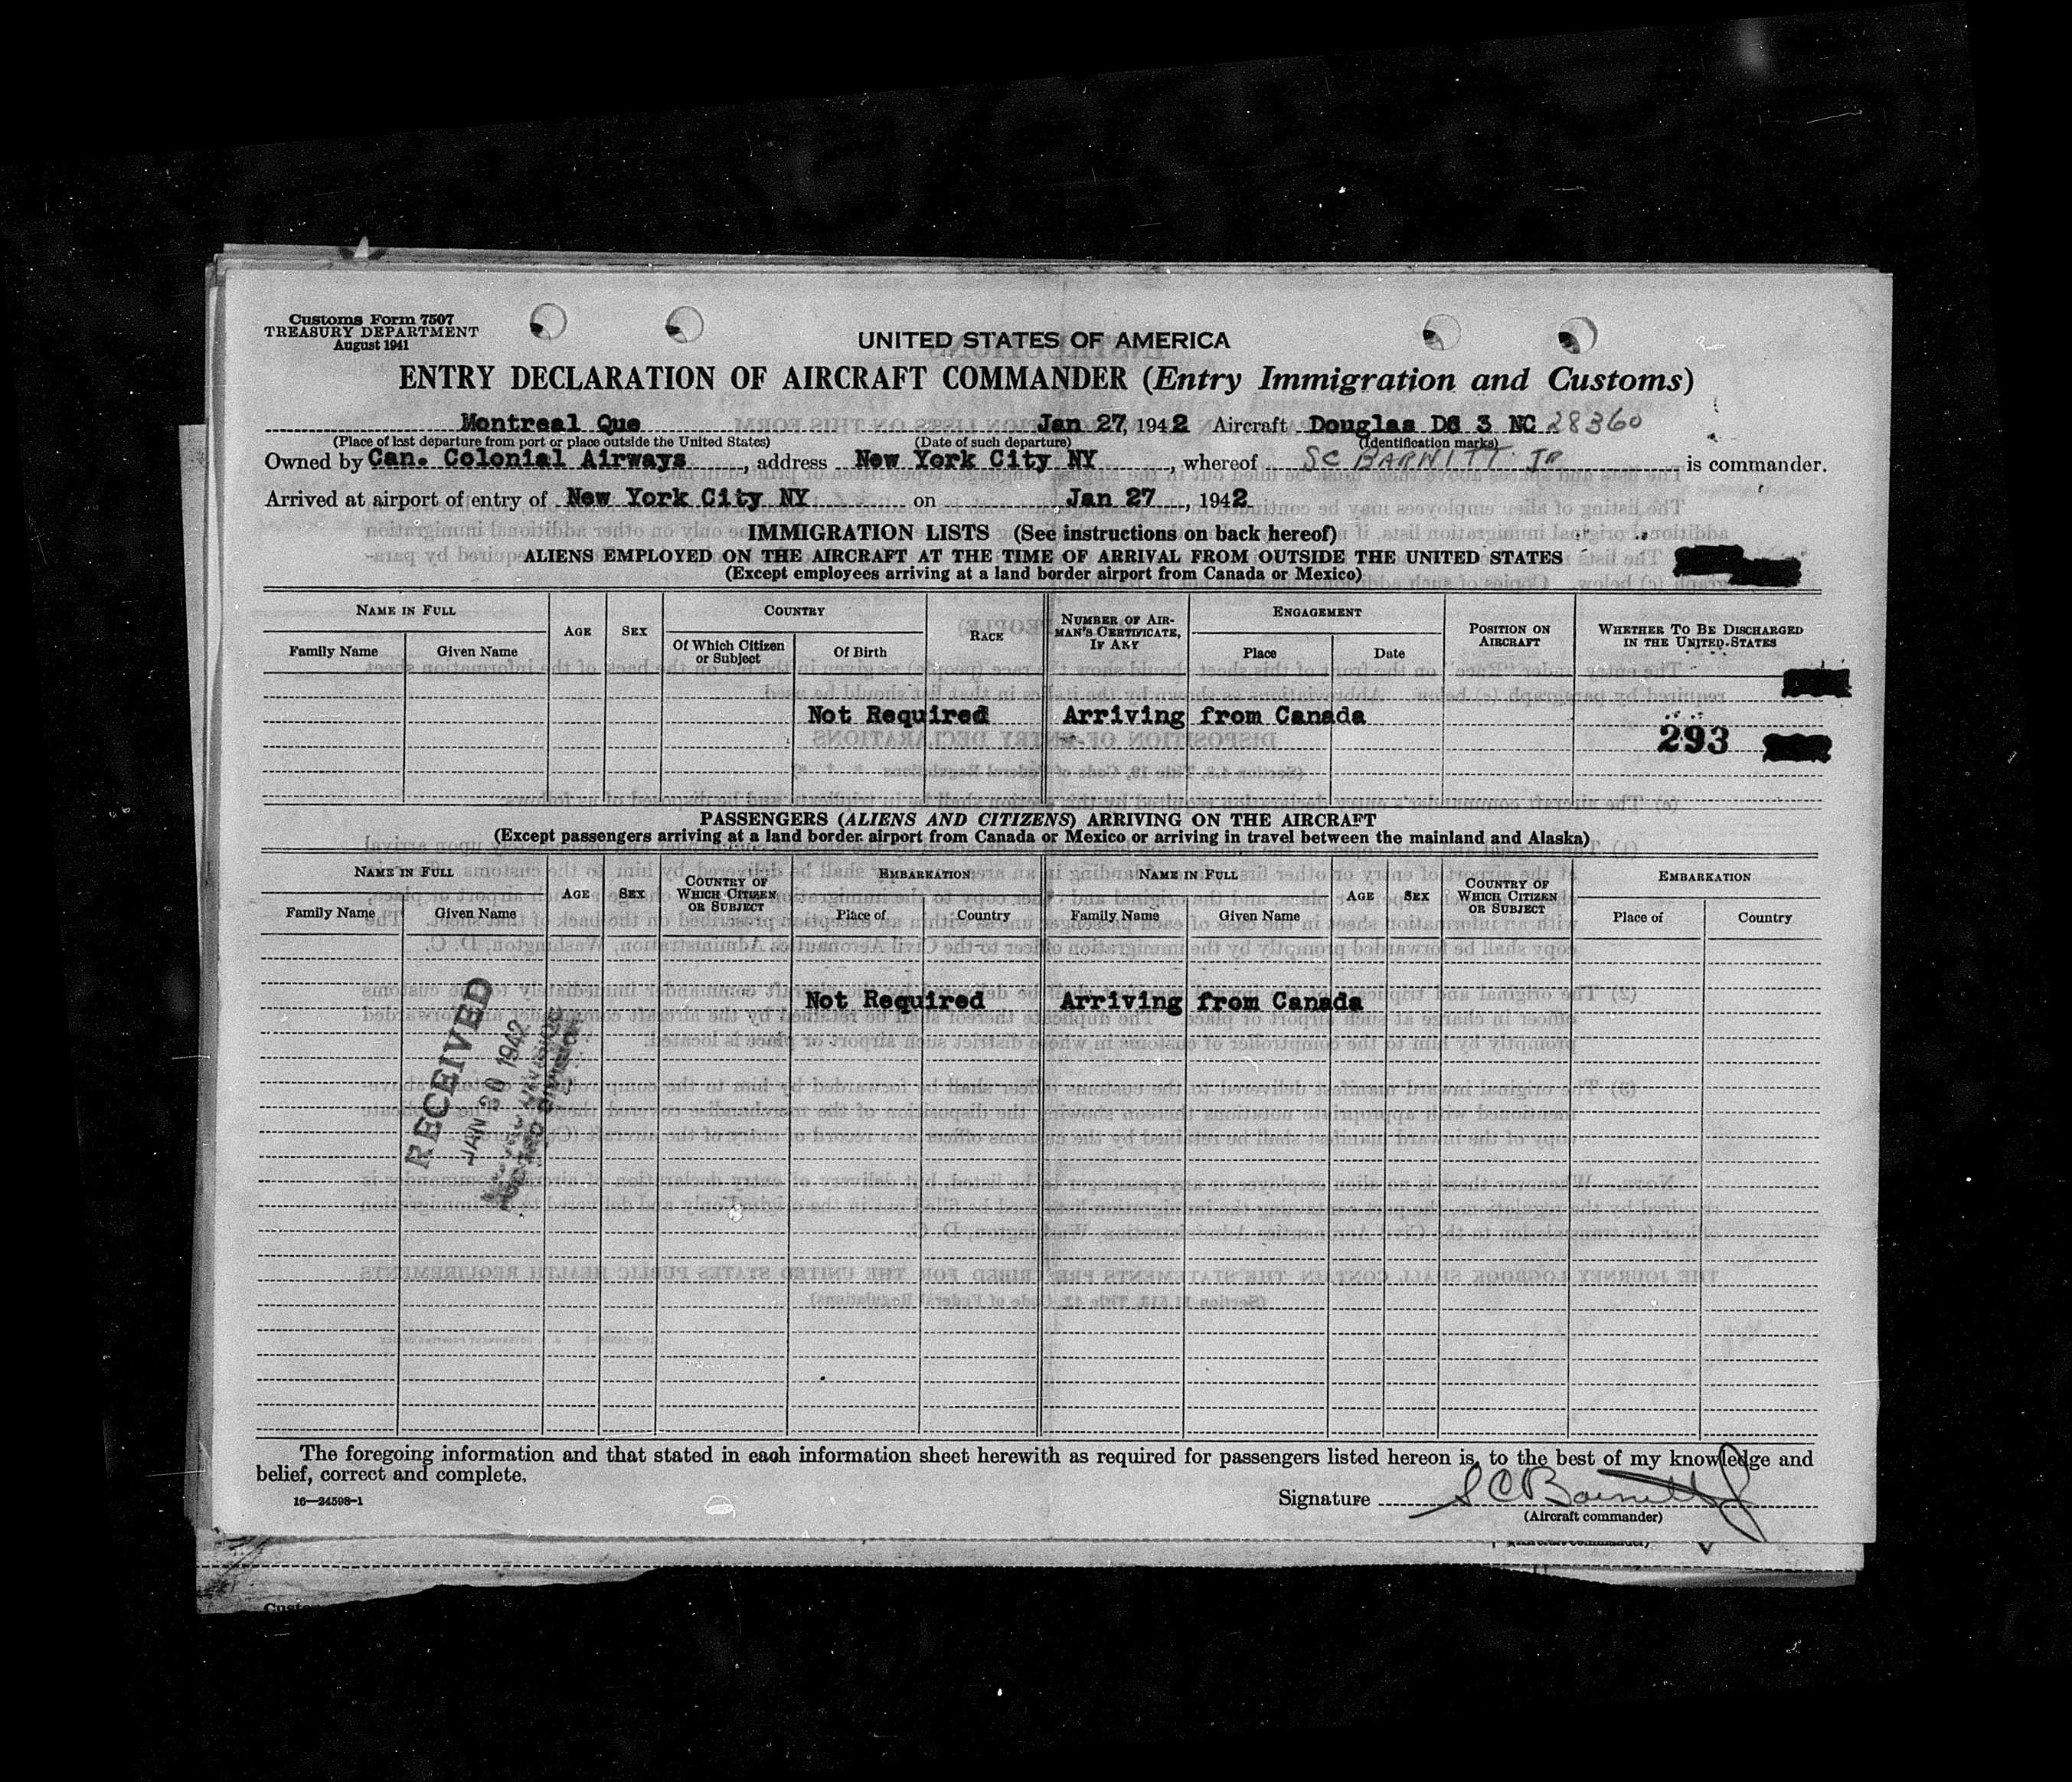 Customs Form 7507
TREASURY DEPARTMENT
August 1941
UNITED STATES OF AMERICA
ENTRY DECLARATION OF AIRCRAFT COMMANDER (Entry Immigration and Customs)
Montreal Que Jan 27, 1942 Aircraft Douglas DC 3 NC 28360
(Place of last departure from port or place outside the United States) (Date of such departure) (Identification marks)
Owned by Can. Colonial Airways, address New York City NY, whereof SC BARNITT JR is commander.
Arrived at airport of entry of New York City NY on Jan 27, 1942
IMMIGRATION LISTS (See instructions on back hereof)
ALIENS EMPLOYED ON THE AIRCRAFT AT THE TIME OF ARRIVAL FROM OUTSIDE THE UNITED STATES
(Except employees arriving at a land border airport from Canada or Mexico)
NAME IN FULL AGE SEX COUNTRY RACE NUMBER OF AIRMAN'S CERTIFICATE, IF ANY ENGAGEMENT POSITION ON AIRCRAFT WHETHER TO BE DISCHARGED IN THE UNITED STATES
Family Name Given Name Of Which Citizen or Subject Of Birth Place Date
Not Required Arriving from Canada
293
PASSENGERS (ALIENS AND CITIZENS) ARRIVING ON THE AIRCRAFT
(Except passengers arriving at a land border airport from Canada or Mexico or arriving in travel between the mainland and Alaska)
NAME IN FULL AGE SEX COUNTRY OF WHICH CITIZEN OR SUBJECT EMBARKATION NAME IN FULL AGE SEX COUNTRY OF WHICH CITIZEN OR SUBJECT EMBARKATION
Family Name Given Name Place of Country Family Name Given Name Place of Country
Not Required Arriving from Canada
RECEIVED
JAN 30 1942
The foregoing information and that stated in each information sheet herewith as required for passengers listed hereon is, to the best of my knowledge and
belief, correct and complete.
16—24598-1
Signature S C Barnitt Jr
(Aircraft commander)